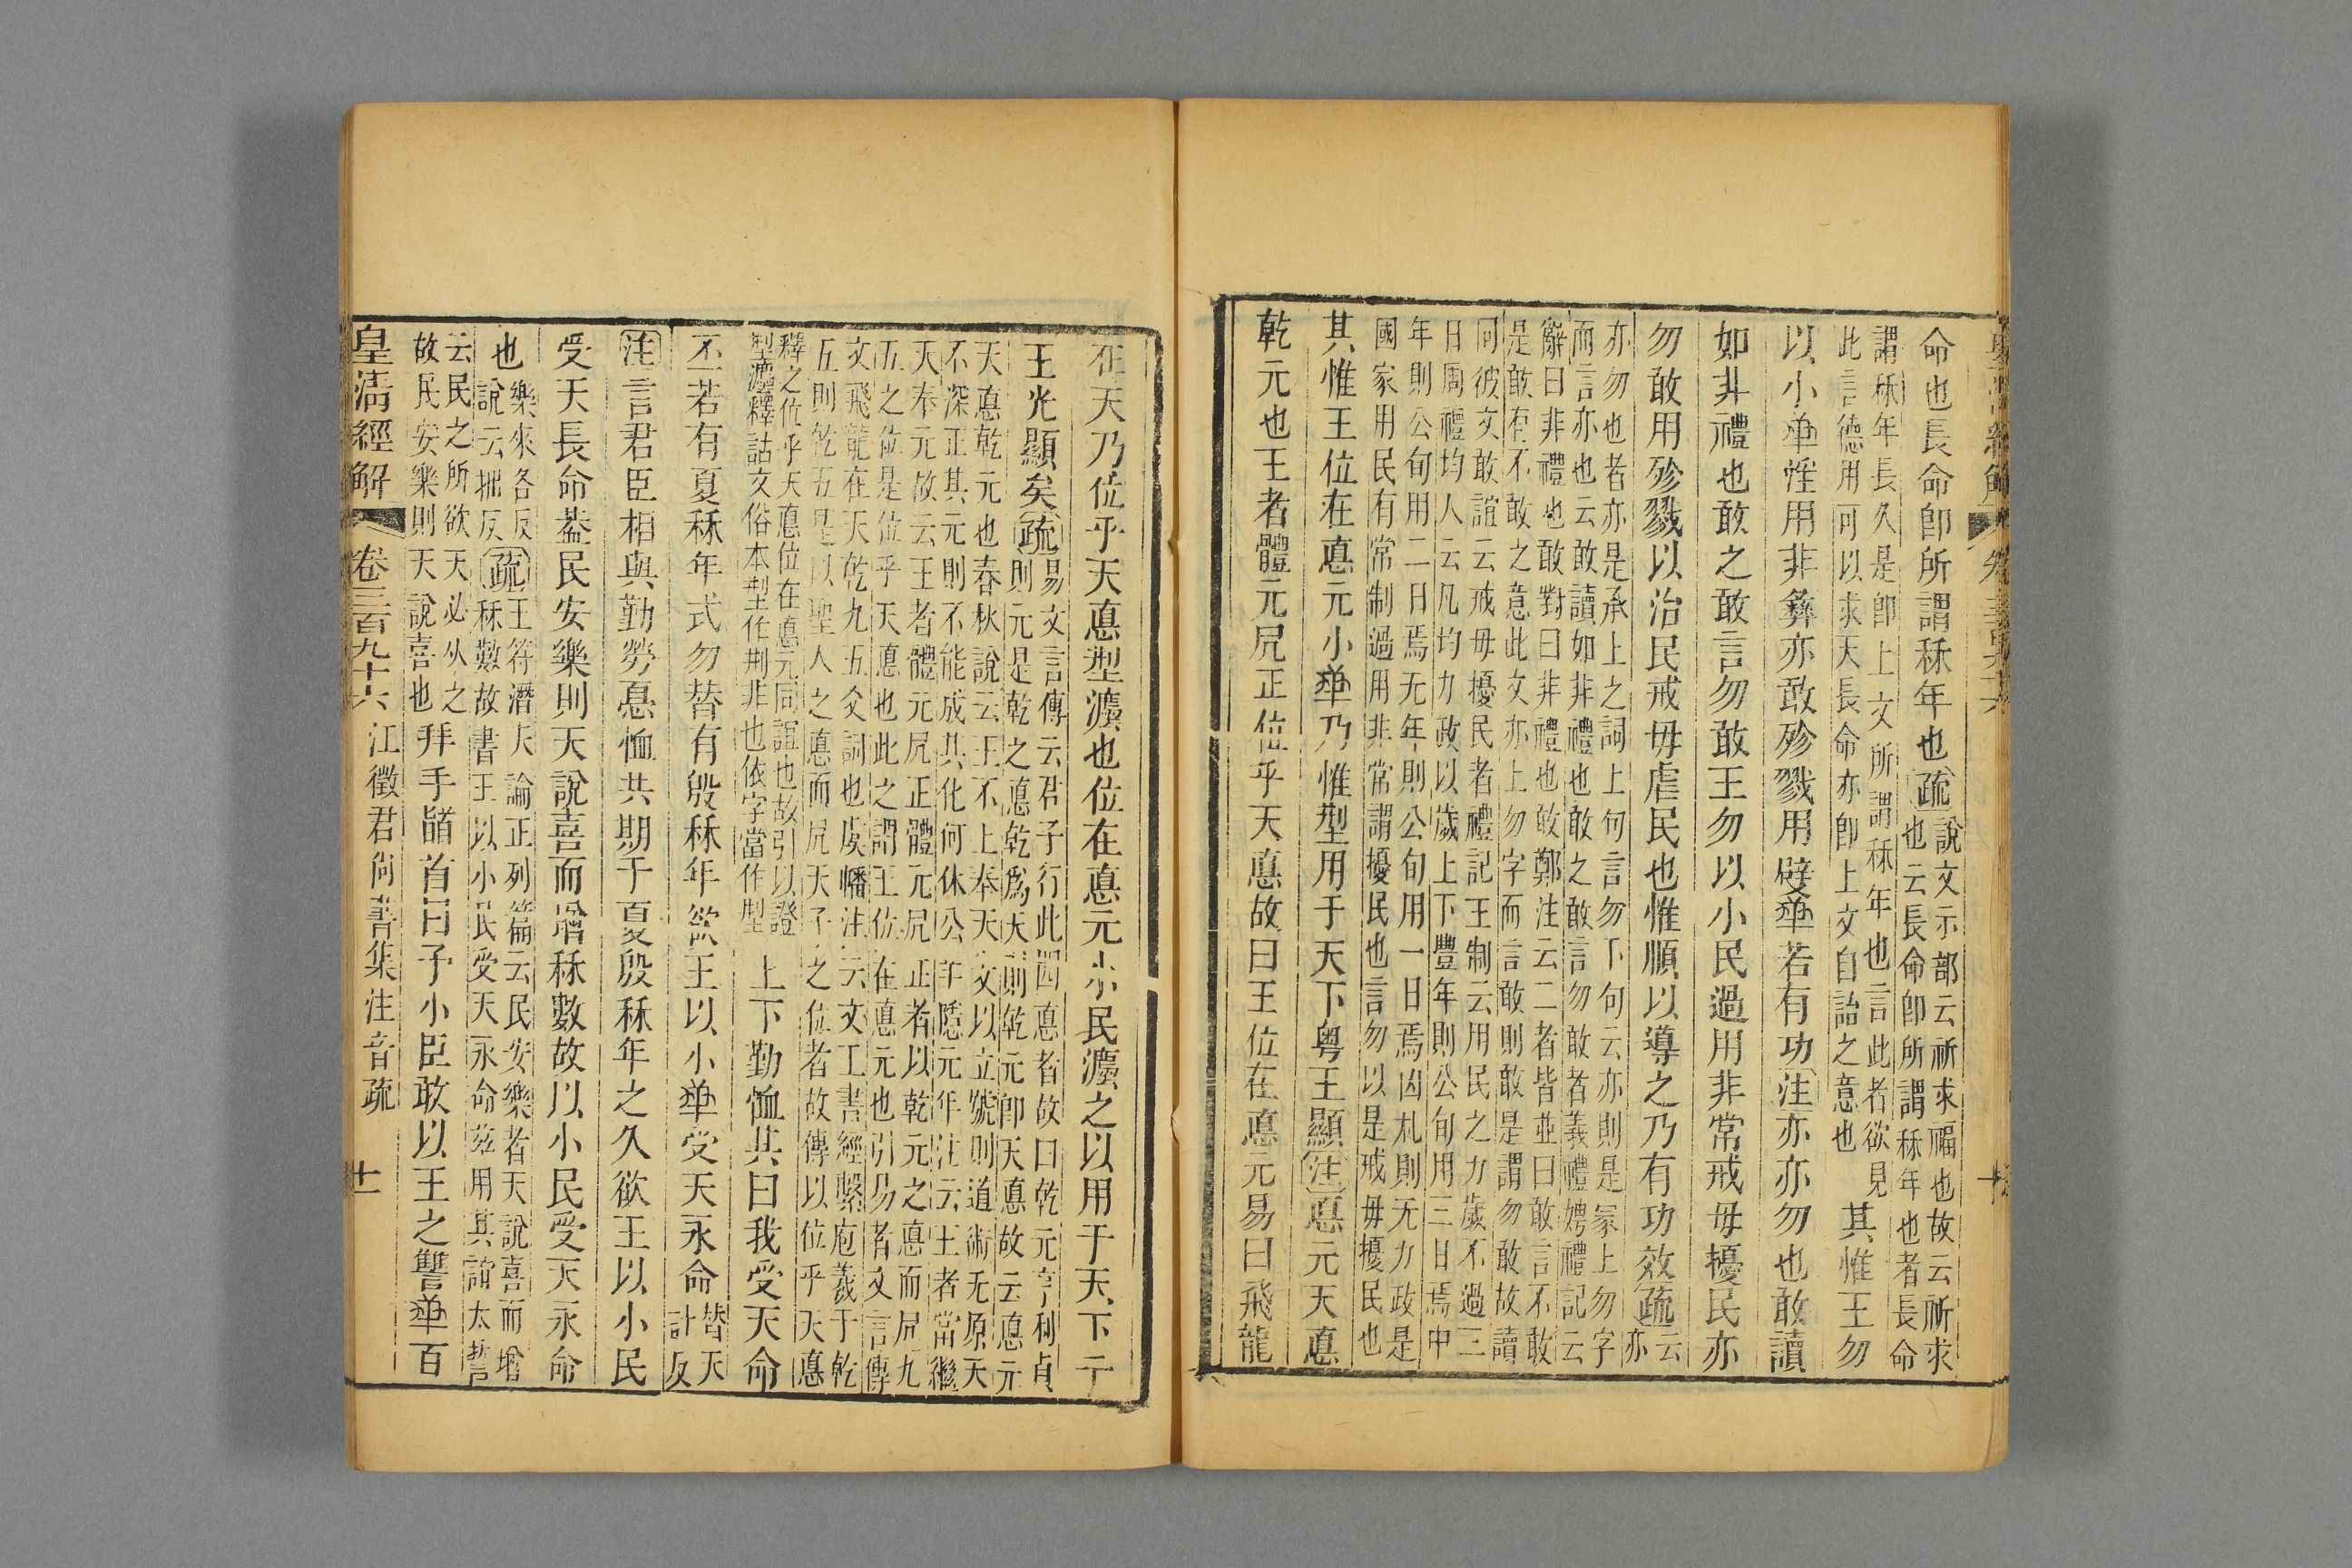 命也長命卽所謂秝年也疏說文示部云祈求福也故云祈求
也云長命卽所謂秝年也者長命
謂秝年長久是卽上文所謂秝年也言此者欲見
此言德用可以求天長命亦卽上文自詒之意也
其惟王勿
以小𠦬惟用非彝亦敢殄戮用壁𠦬若有功注亦亦勿也敢讀
如非禮也敢之敢言勿敢王勿以小民過用非常戒毋擾民亦
勿敢用殄戮以治民戒毋虐民也惟順以導之乃有功效疏云
亦
亦勿也者亦是承上之詞上句言勿下句云亦則是冡上勿字
而言亦也云敢讀如非禮也敢之敢言勿敢者義禮娉禮記云
辭曰非禮也敢對曰非禮也敢鄭注云二者皆並曰敢言不敢
是敢有不敢之意此文亦上勿字而言敢則敢是謂勿敢故讀
同彼文敢誼云戒毋擾民者禮記王制云用民之力歲不過三
日周禮均人云凡均力政以歲上下豐年則公旬用三日焉中
年則公旬用二日焉无年則公旬用一日焉凶札則无力政是
國家用民有常制過用非常謂擾民也言勿以是戒毋擾民也
其惟王位在悳元小𠦬乃惟型用于天下粤王顯注悳元天悳
乾元也王者體元凥正位乎天悳故曰王位在悳元易曰飛龍
在天乃位乎天悳型灋也位在悳元小民灋之以用于天下于
王光顯矣疏易文言傳云君子行此四悳者故曰乾元亨利貞
則元是乾之悳乾爲天則乾元卽天悳故云悳元
天悳乾元也春秋說云王不上奉天文以立號則道術无原天
不深正其元則不能成其化何休公羊隱元年注云王者當繼
天奉元故云王者體元凥正體元凥正者以乾元之悳而凥九
五之位是位乎天悳也此之謂王位在悳元也引易者文言傳
文飛龍在天乾九五爻詞也虞幡注云文王書經繫庖羲于乾
五則乾五是以聖人之悳而凥天子之位者故傳以位乎天悳
釋之位乎天悳位在悳元同誼也故引以證
型灋釋詁文俗本型作荆非也依字當作型
上下勤恤其曰我受天命
丕若有夏秝年式勿朁有殷秝年欲王以小𠦬受天永命朁天
計反
注言君臣相與勤勞憂恤共期于夏殷秝年之久欲王以小民
受天長命葢民安樂則天說喜而增秝數故以小民受天永命
也樂來各反
說云拙反疏王符潛夫論正列篇云民安樂者天說喜而增
秝數故書王以小民受天永命茲用其誼太誓
云民之所欲天必从之
故民安樂則天說喜也
拜手䭫首曰予小臣敢以王之讐𠦬百
皇淸經解
卷三百九十六
江徵君尙書集注音疏
十一